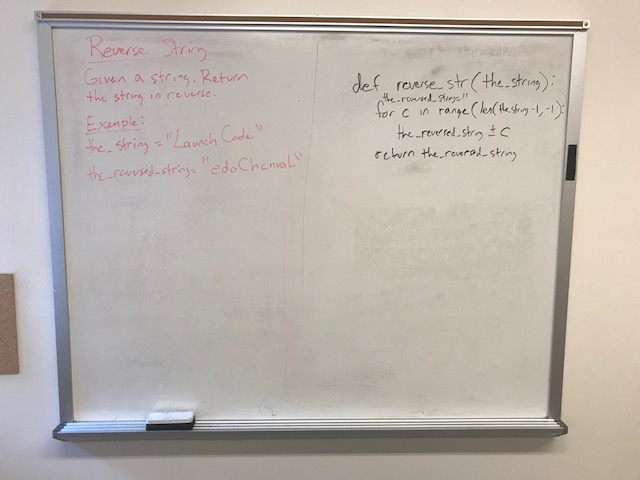 Reverse String
Given a string. Return
the string in reverse.
Example:
the_string = "Launch Code"
the_reversed_string= "edoChcnuaL"
def reverse_str(the_string):
the_reversed_string=''
for c in range(len(the string-1,-1):
the_reversed_string ± c
return the_reversed_string